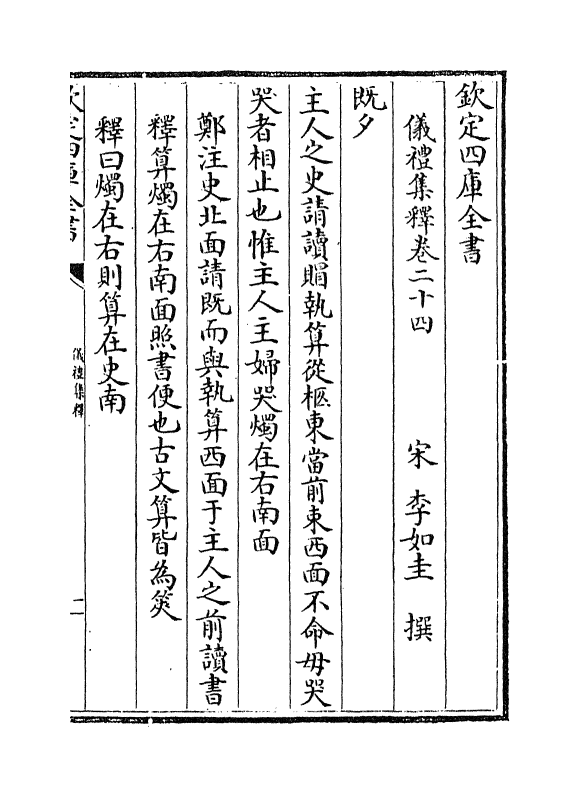 欽定四庫全書
儀禮集釋卷二十四
宋 李如圭 撰
既夕
主人之史請讀賵執算從柩東當前東西面不命毋哭
哭者相止也惟主人主婦哭燭在右南面
鄭注史北面請既而與執算西面于主人之前讀書
釋算燭在右南面照書便也古文算皆為筴
釋曰燭在右則算在史南
欽定四庫全書
儀禮集釋